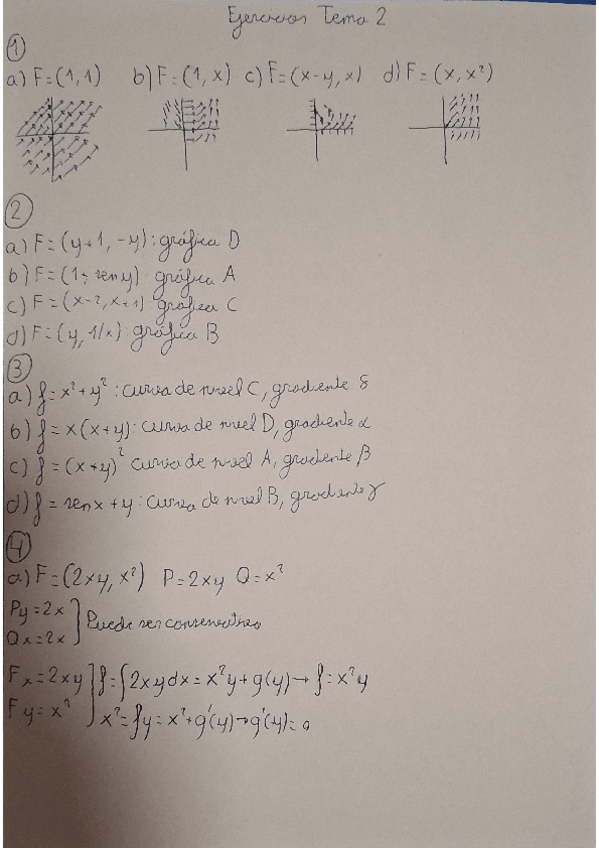 Ejercicios Tema 2
1
a) F=(1,1) b) F=(1,x) c) F=(x-y,x) d) F=(x,x²)
2
a) F=(y+1,-y): gráfica D
b) F=(1, sen y) gráfica A
c) F=(x-2,x+1) gráfica C
d) F=(y,1/x) gráfica B
3
a) f=x²+y²: curva de nivel C, gradiente δ
b) f=x(x+y): curva de nivel D, gradiente α
c) f=(x+y)² curva de nivel A, gradiente β
d) f=sen x+y: curva de nivel B, gradiente γ
4
a) F=(2xy,x²) P=2xy Q=x²
Py=2x
Qx=2x ] Puede ser conservativo
Fx=2xy ] f=∫2xydx=x²y+g(y)→f=x²y
Fy=x² ] x²=fy=x²+g'(y)→g'(y)=0